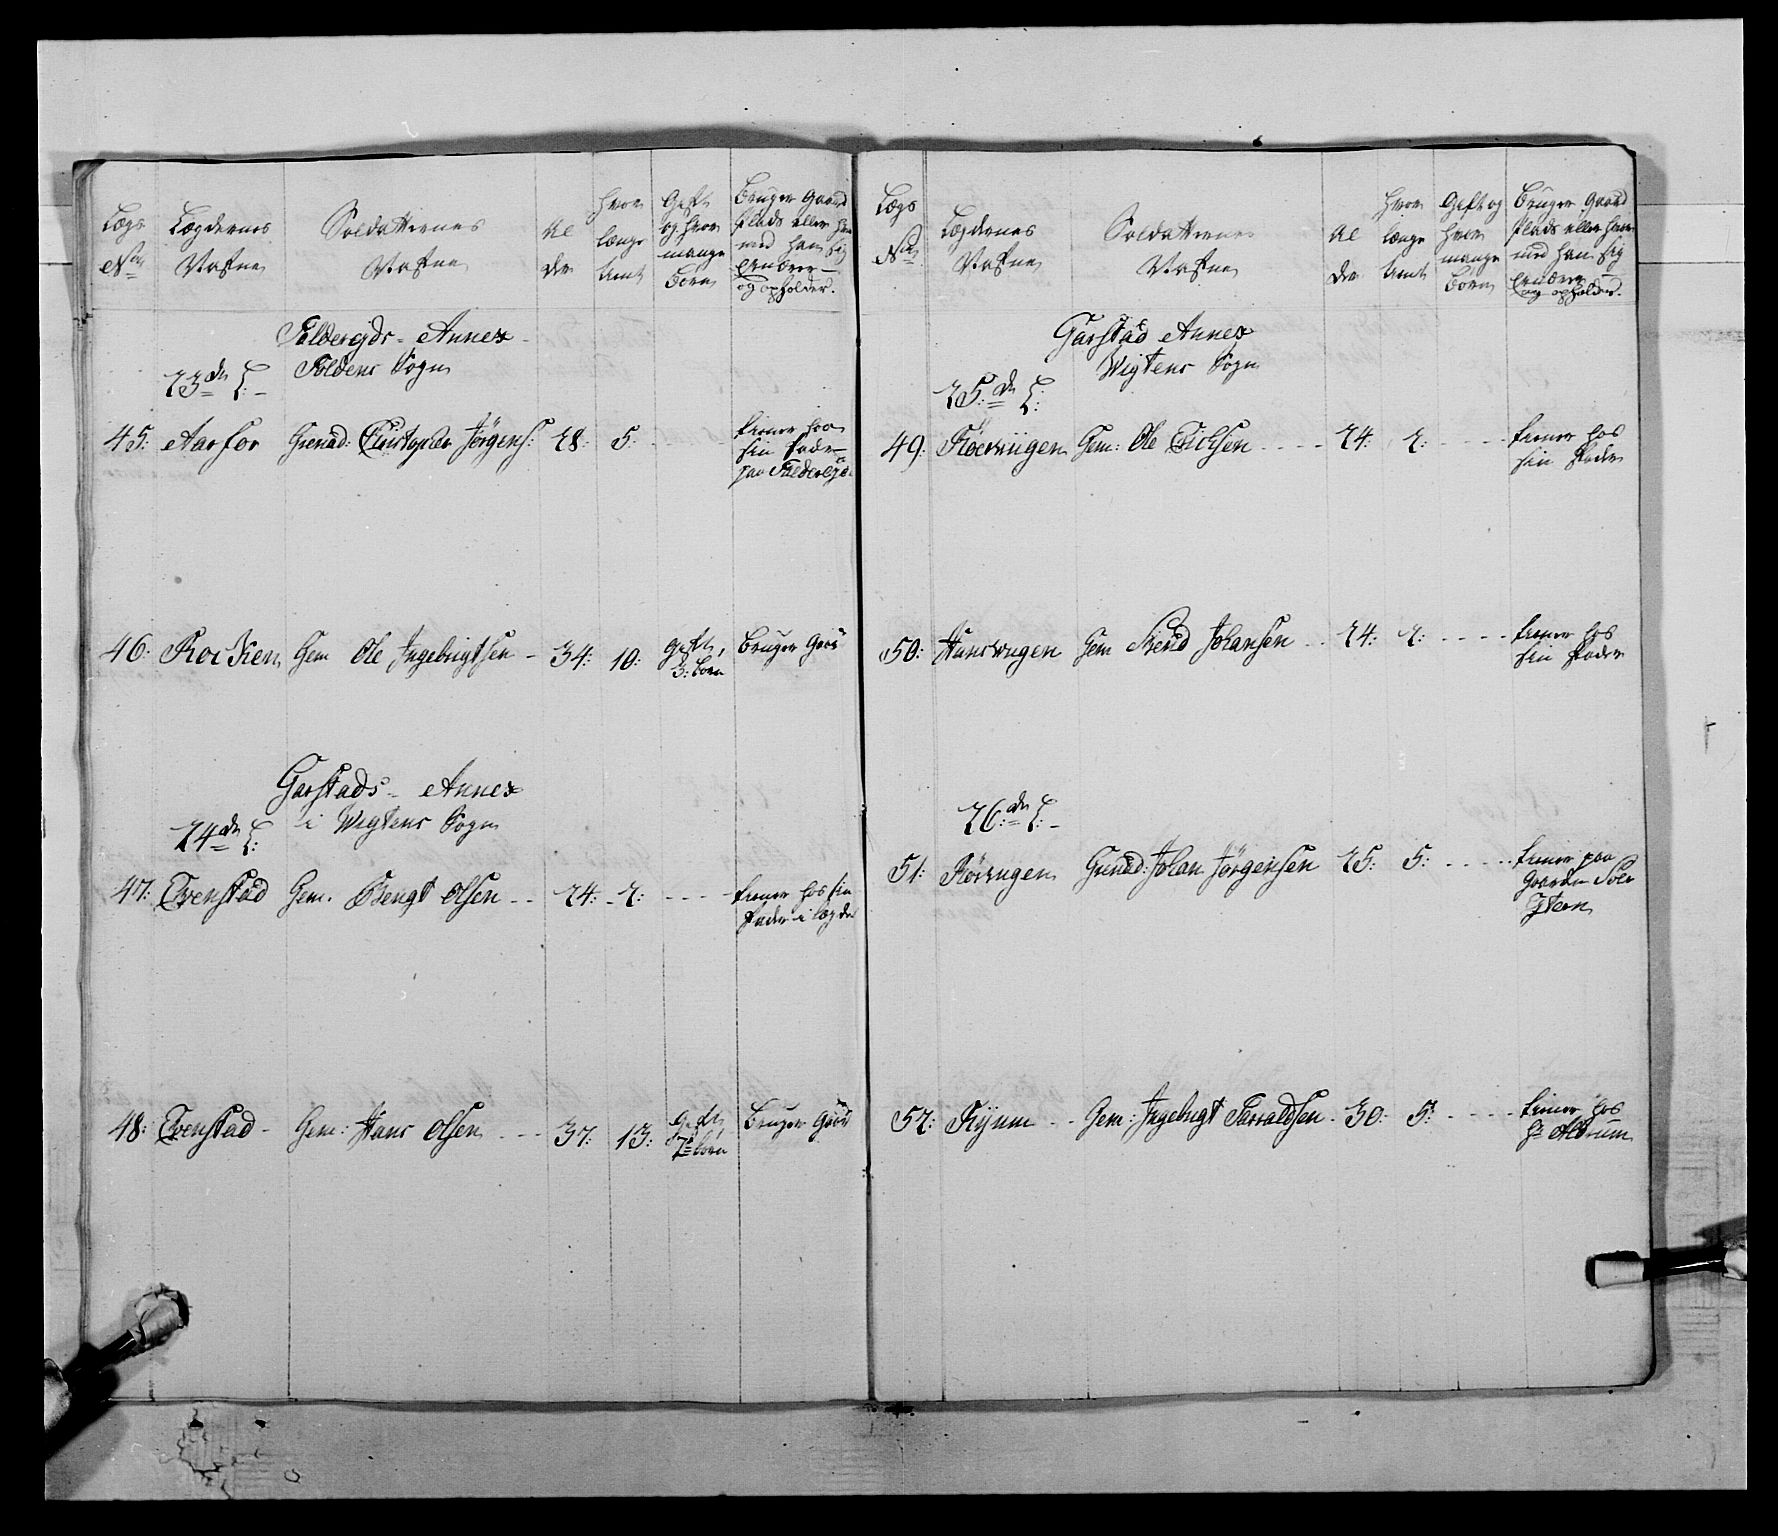 Lægs
No
Lægdernes
Nafne
Soldatternes
Nafne
Al
der
Hvor
længe
tient
Gift
og hvor
mange
Børn
Bruger Gaard
Plads eller hvor
med han sig
Ernærer
og opholder.
Foldereyds - Annex
Foldens Sogn
23de L:
45: Aarfor Grenad: Christopher Jörgens: 28. 5: - - - tiener hos
sin Fader
paa Foldereyd
46: Rocken Gem Ole Ingebrigtsen - 34: 10: Gift,
3: Børn
Bruger Grd
Garstads - Annex
i Wigtens Sogn
24de L:
47: Evenstad Gem. Bengt Olsen - - 24: - 2: - - - tiener hos sin
Fader i lægdet
48: Evenstad - Gem: Hans Olsen - - - 32: 13: Gift
2de Børn
Bruger Grd
Lægs
No
Lægdernes
Nafne
Soldatternes
Nafne
Al
der
Hvor
længe
tient
Gift og
hvor
mange
Børn
Bruger Gaard
Plads eller hvor
med han sig
Ernærer
og opholder.
Garstad Annex
Wigtens Sogn
25:de L:
49: Gem: Ole Erichsen - - - - 24: 2: - - - - tiener hos
sin Fader
50: Gem Svend Johansen - - 24: 2: - - - - tiener hos
sin Fader
26:de L: -
51: Grenad: Johan Jörgensen 25: 5: - - - - - tiener paa
Gaarden Soer
52: Rynum - - Gem: Ingebrigt Torraldsen - 30: 5: - - - - tiener hos
Hr